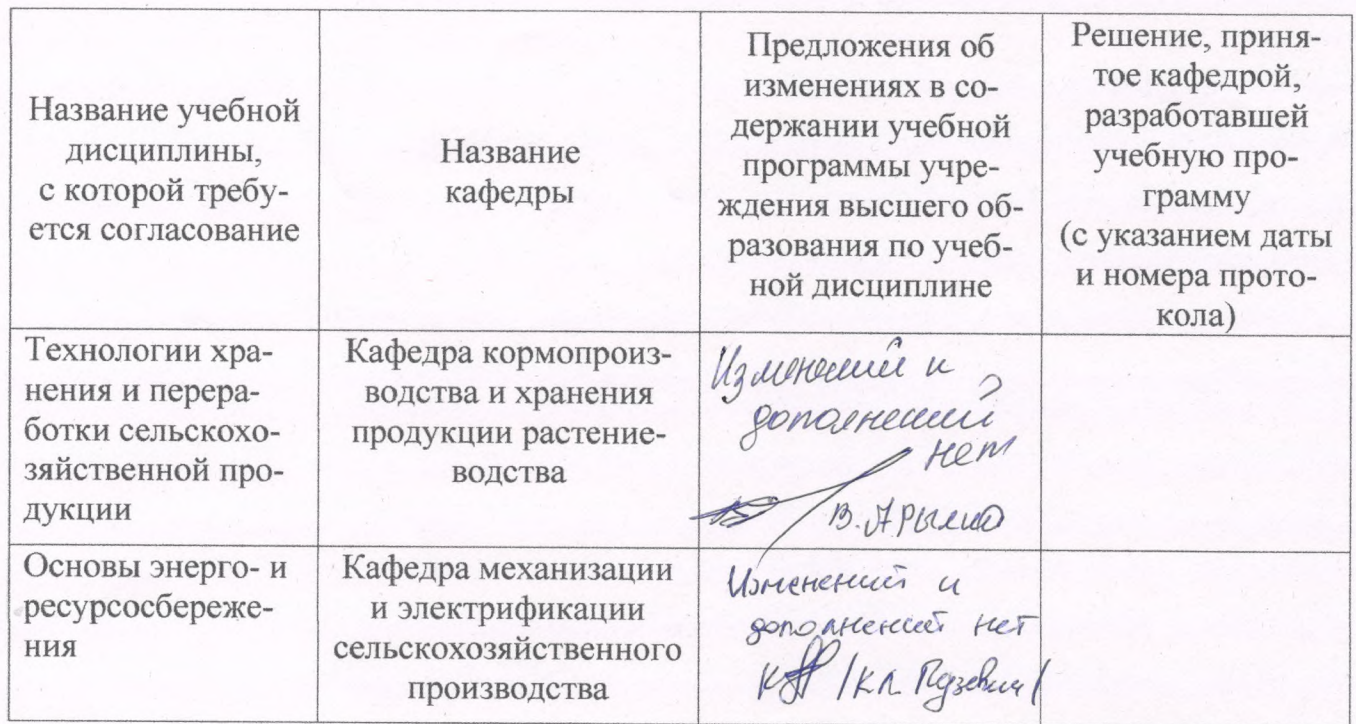 Название учебной
дисциплины,
с которой требу-
ется согласование
Название
кафедры
Предложения об
изменениях в со-
держании учебной
программы учре-
ждения высшего об-
разования по учеб-
ной дисциплине
Решение, приня-
тое кафедрой,
разработавшей
учебную про-
грамму
(с указанием даты
и номера прото-
кола)
Технологии хра-
нения и перера-
ботки сельскохо-
зяйственной про-
дукции
Кафедра кормопроиз-
водства и хранения
продукции растение-
водства
Изменений и
дополнений
нет
Основы энерго- и
ресурсосбереже-
ния
Кафедра механизации
и электрификации
сельскохозяйственного
производства
Изменений и
дополнений нет